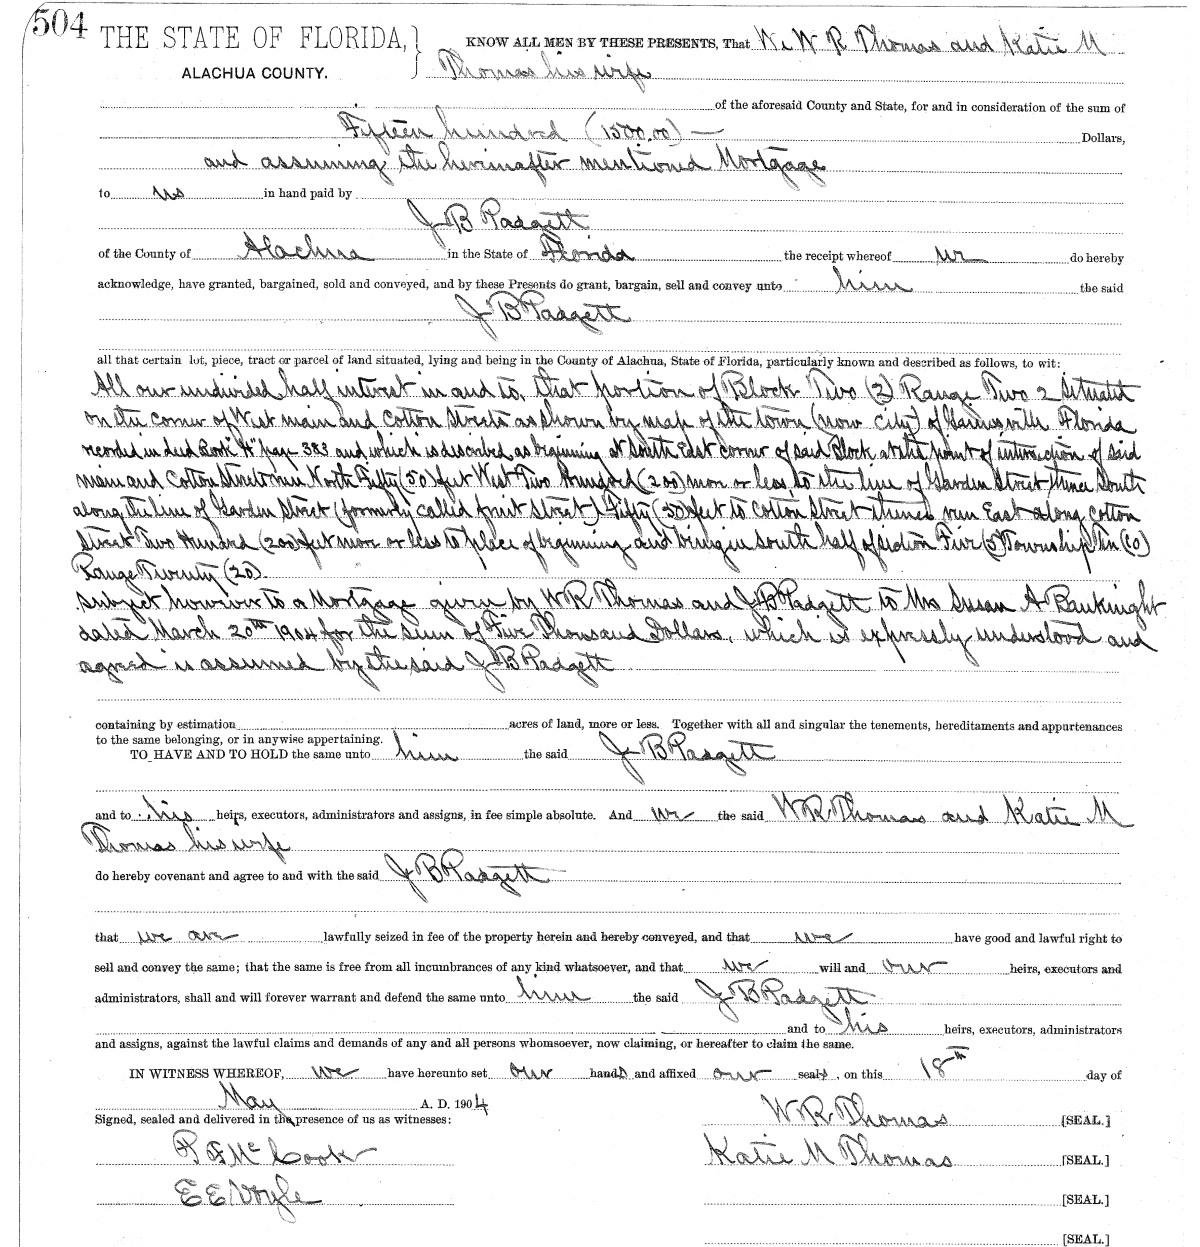 504
THE STATE OF FLORIDA,
ALACHUA COUNTY.
KNOW ALL MEN BY THESE PRESENTS, That We W R Thomas and Katie M
Thomas his wife
of the aforesaid County and State, for and in consideration of the sum of
Fifteen hundred (1500.00) — Dollars,
and assuming the hereinafter mentioned Mortgage
to us in hand paid by
J B Padgett
of the County of Alachua in the State of Florida the receipt whereof we do hereby
acknowledge, have granted, bargained, sold and conveyed, and by these Presents do grant, bargain, sell and convey unto him the said
J B Padgett
all that certain lot, piece, tract or parcel of land situated, lying and being in the County of Alachua, State of Florida, particularly known and described as follows, to wit:
All our undivided half interest in and to, that portion of Block Two (2) Range Two 2 situated
on the corner of West main and Cotton Streets as shown by map of the town (now city) of Gainesville Florida
recorded in deed Book "A" page 383 and which is described as beginning at South East corner of said Block at the point of intersection of said
main and Cotton Streets run North Fifty (50) feet West Two Hundred (200) more or less, to the line of Garden Street, thence South
along the line of Garden Street (formerly called fruit Street) Fifty (50) feet to Cotton Street thence run East along Cotton
Street Two Hundred (200) feet more or less to place of beginning and being in South half of section Five (5) Township Ten (10)
Range Twenty (20).
Subject however to a Mortgage given by W R Thomas and J B Padgett to Mrs Susan A
dated March 20th 1904 for the sum of Five Thousand Dollars, which is expressly understood and
agreed is assumed by the said J B Padgett
containing by estimation acres of land, more or less. Together with all and singular the tenements, hereditaments and appurtenances
to the same belonging, or in anywise appertaining.
TO HAVE AND TO HOLD the same unto him the said J B Padgett
and to his heirs, executors, administrators and assigns, in fee simple absolute. And we the said W R Thomas and Katie M
Thomas his wife
do hereby covenant and agree to and with the said J B Padgett
that we are lawfully seized in fee of the property herein and hereby conveyed, and that we have good and lawful right to
sell and convey the same; that the same is free from all incumbrances of any kind whatsoever, and that we will and our heirs, executors and
administrators, shall and will forever warrant and defend the same unto him the said J B Padgett
and to his heirs, executors, administrators
and assigns, against the lawful claims and demands of any and all persons whomsoever, now claiming, or hereafter to claim the same.
IN WITNESS WHEREOF, we have hereunto set our hands and affixed our seals, on this 18th day of
May A. D. 1904
Signed, sealed and delivered in the presence of us as witnesses:
W R Thomas [SEAL.]
McCook
Katie M Thomas [SEAL.]
E E Voyle
[SEAL.]
[SEAL.]